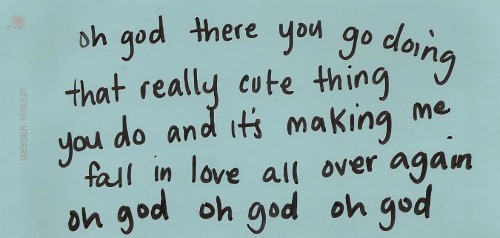 oh god there you go doing
that really cute thing
you do and it's making me
fall in love all over again
oh god oh god oh god
GEYSER MSL127